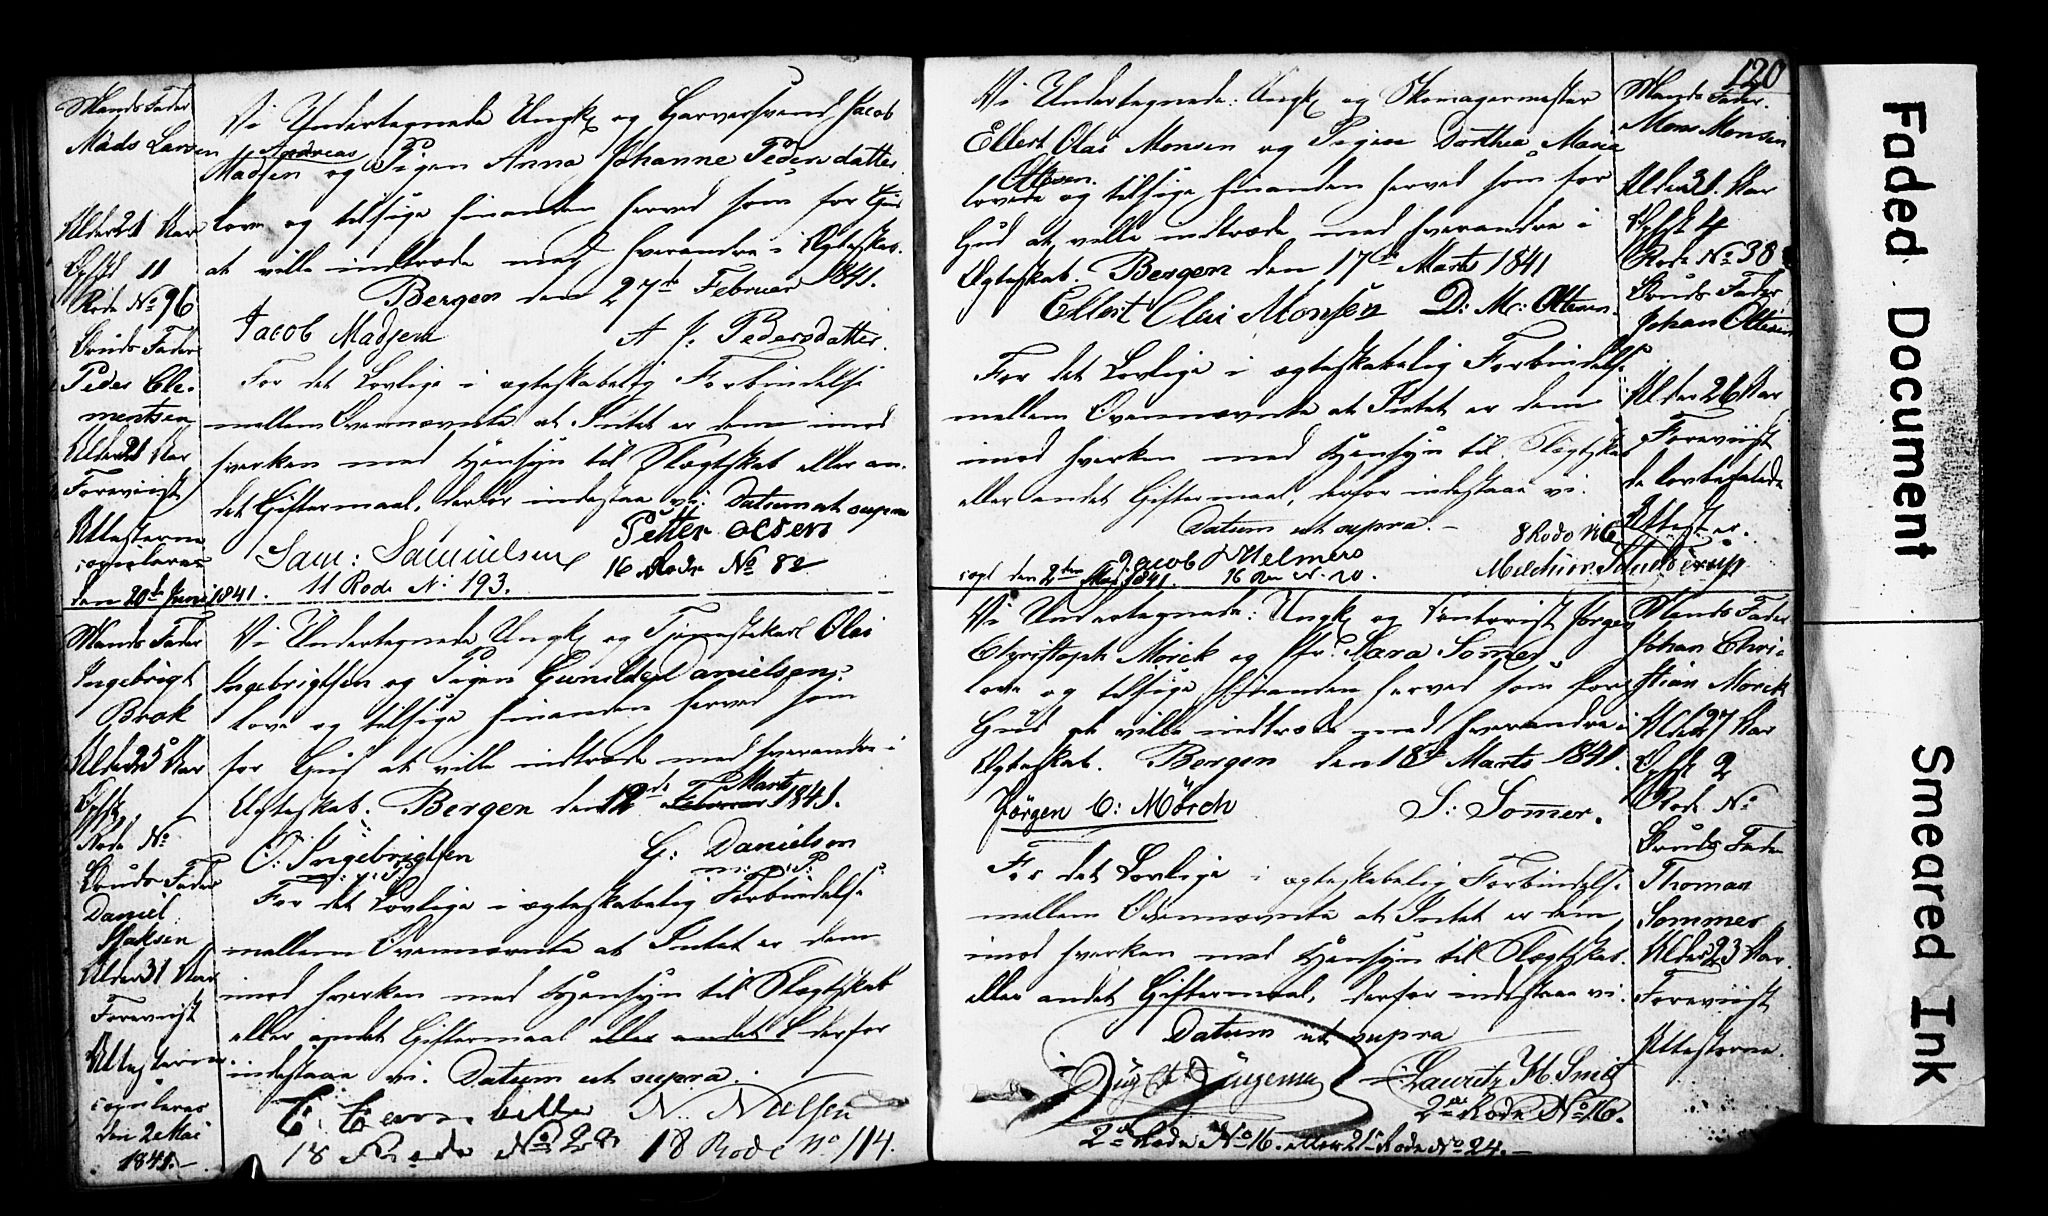 Mands Fader
Mads Larsen
Alder 21 Aar
Opfst 11
Rode No 96
Bruds Fader
Peder Cle-
mentsen
Alder 21 Aar
Foreviist
Attesterne
copuleres
den 20de Juni 1841.
Vi Undertegnede Ungk og Garversvend Jacob
Andreas
Madsen og Pigen Anna Johanne Pedersdatter
love og tilsige hinanden herved som for Gud
at ville indtræde med hverandre i Ægteskab.
Bergen den 27de Februar 1841.
Jacob Madsen A J. Pedersdatter.
For det Lovlige i ægteskabelig Forbindelse
mellem Ovennævnte at Intet er dem imod
hverken med Hensyn til Slægtskab eller an-
det Giftermaal, derfor indestaae vi. Datum ut supra
Sam: Samuelsen Petter Olsen
11 Rode N: 193. 16 Rode No 82
Mands Fader
Ingebrigt
Brak
Alder 25 Aar
Opfst
Rode No
Bruds Fader
Daniel
Isaksen
Alder 31 Aar
Foreviist
Attesterne
copuleres
den 2 Mai
1841.
Vi Undertegnede Ungk og Tjenestekarl Olai
Ingebrigtsen og Pigen Gunilde Danielsen,
love og tilsige hinanden herved som
for Gud at ville indtræde med hverandre i
Marts
Ægteskab. Bergen den 12de Februar 1841.
O: Ingebrigtsen G: Danielsen
m: p: P: m: p: P:
For det Lovlige i ægteskabelig Forbindelse
mellem Ovennævnte at Intet er dem
imod hverken med Hensyn til Slægtskab
eller andet Giftermaal eller andet derfor
indestaae vi. Datum ut supra.
N. Nielsen
18 Rode No 28 18 Rode No 114.
120
Vi Undertegnede: Ungk og Skomagermester
Ellert Olai Monsen og Pigen Dorthea Maria
Ottesen.
lovede og tilsige hinanden herved som for
Gud at ville indtræde med hverandre i
Ægteskab. Bergen den 17de Marts 1841
Ellert Olai Monsen D: M: Ottesen.
For det Lovlige i ægteskabelig Forbindelse
mellem Ovennævnte at Intet er dem
imod hverken med Hensyn til Slægtskab
eller andet Giftermaal, derfor indestaae vi.
Datum ut supra.
8 Rode No 6
Jacob Helmers
copl den 2den Mai 1841. 16 Rode No. 20.
Mands Fader.
Mons Monsen
Alder 31. Aar
Opfst 4
Rode No 38
Bruds Fader
Johan Ottesen
Alder 26 Aar
Foreviist
de lovbefalede
Attester.
Vi Undertegnede: Ungk og Contorist Jørgen
Christoph Mørck og Jfr. Sara Somer
love og tilsige hinanden herved som for
Gud at ville indtræde med hverandre i
Ægteskab. Bergen den 18de Marts 1841.
Jørgen C: Mörch S: Somer.
For det Lovlige i ægteskabelig Forbindelse
mellem Ovennævnte at Intet er dem
imod hverken med Hensyn til Slægtskab.
eller andet Giftermaal, derfor indestaae vi.
Datum ut supra
Lauritz H. Smit
2de Rode No 16.
2de Rode No 16. eller 21de Rode No 24.
Mands Fader
Johan Chri-
stian Mørck
Alder 27 Aar
Opfst 2
Rode No
Bruds Fader
Thomas
Sommer
Alder 23 Aar.
Foreviist
Attesterne.
Faded Document
Smeared Ink